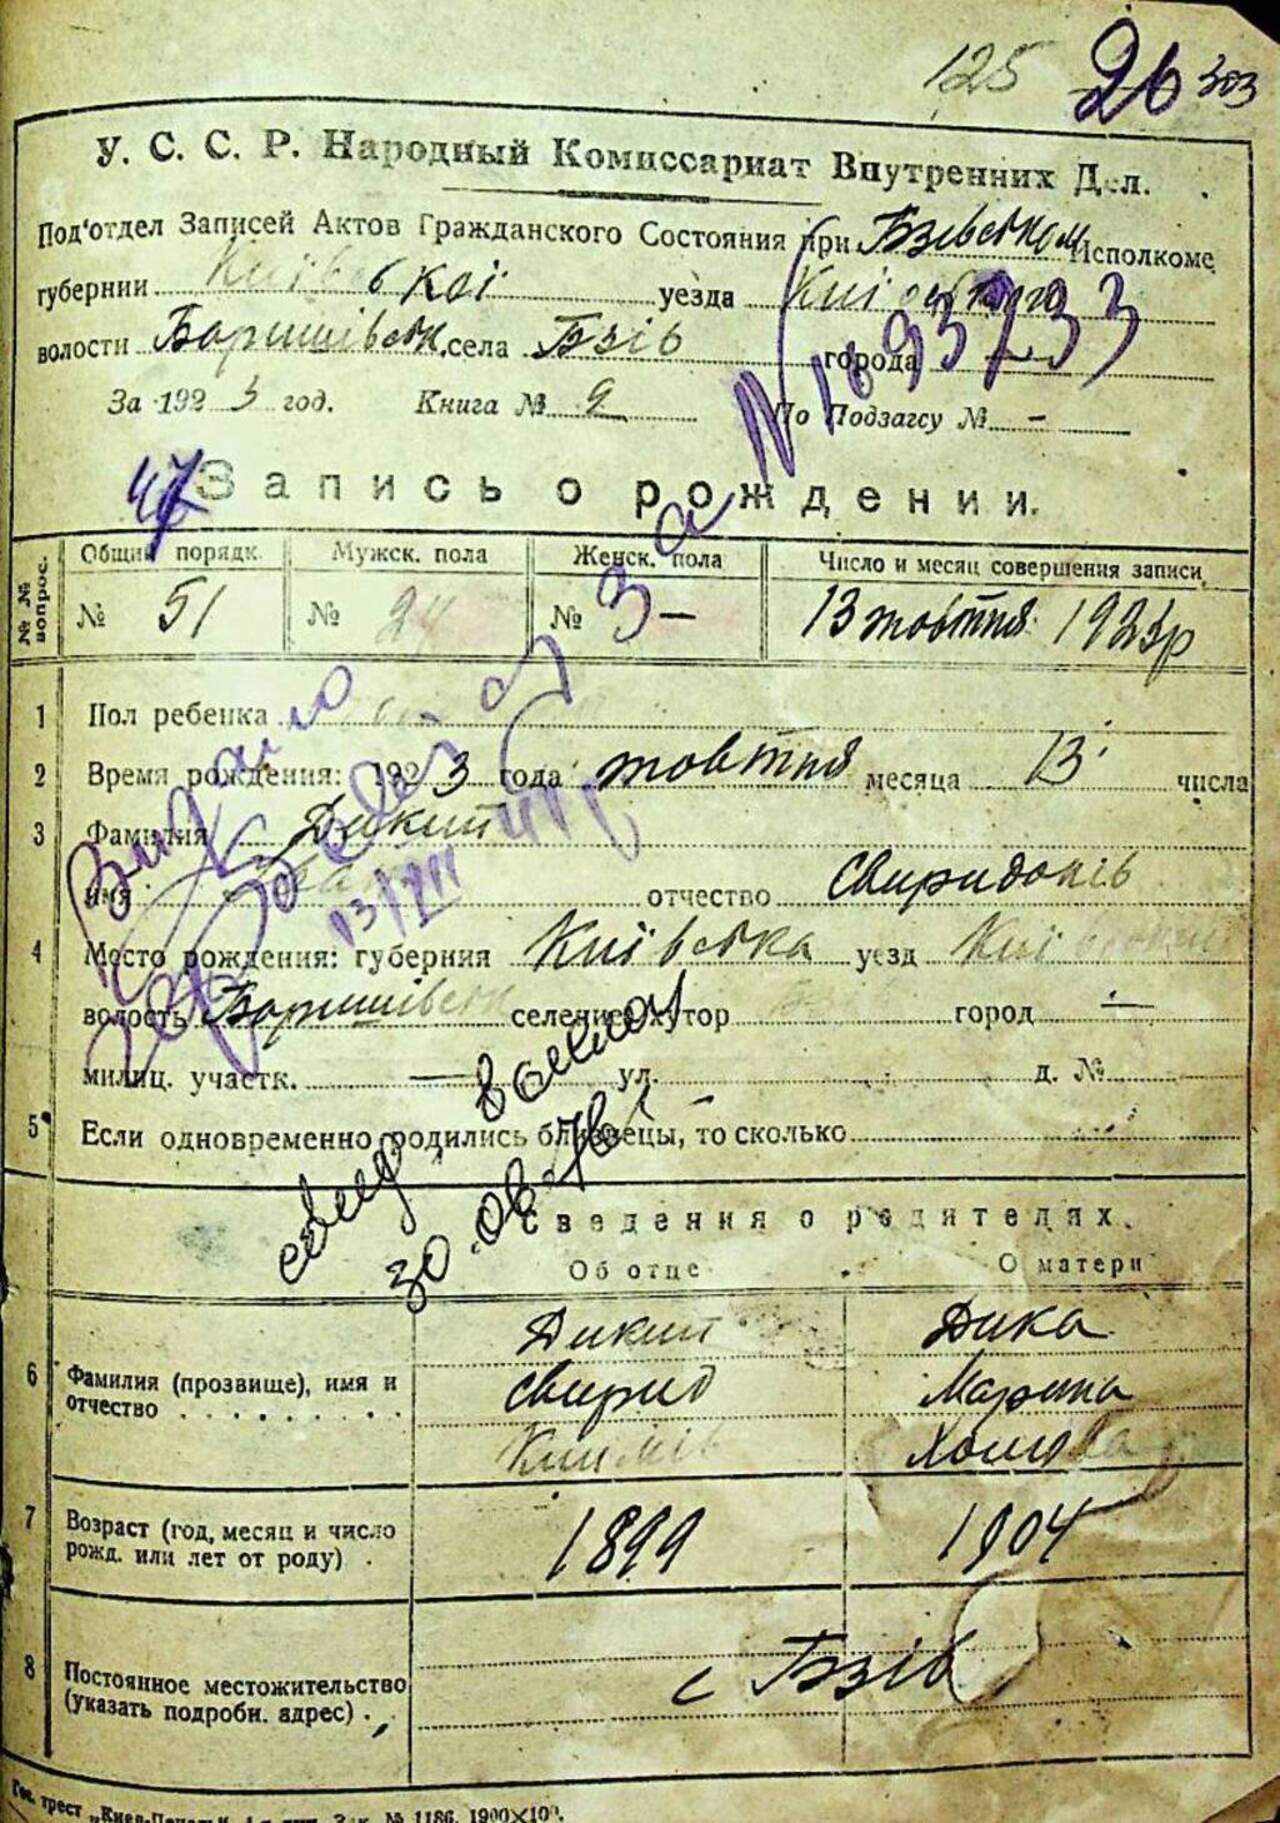 125 26 303
У. С. С. Р. Народный Комиссариат Внутренних Дел.
Под'отдел Записей Актов Гражданского Состояния при Бзівськом Исполкоме
губернии Київської уезда Київського
волости Баришівськ. села Бзів города —
№ 1693733
За 1923 год. Книга № 9 По Подзагсу № -
47
Запись о рождении.
№№ вопрос. Общий порядк. Мужск. пола Женск. пола Число и месяц совершения записи
№ 51 № 24 № — 13 жовтня 1923р
1 Пол ребенка
2 Время рождения: 1923 года жовтня месяца 13 числа
3 Фамилия Дикий
имя Іван отчество Свиридонів
Видано
13/VII
4 Место рождения: губерния Київська уезд Київський
волость Баришівськ селение, хутор город —
милиц. участк. — ул. д. №
5 Если одновременно родились близнецы, то сколько
30.08.76
Сведения о родителях.
Об отце О матери
6 Фамилия (прозвище), имя и отчество
Дикий Дика
Свирид Марина
Климів Хомівна
7 Возраст (год, месяц и число рожд. или лет от роду) 1899 1904
8 Постоянное местожительство (указать подробн. адрес) с Бзів
Гос. трест „Киев-Печать“ Зак. № 1186.